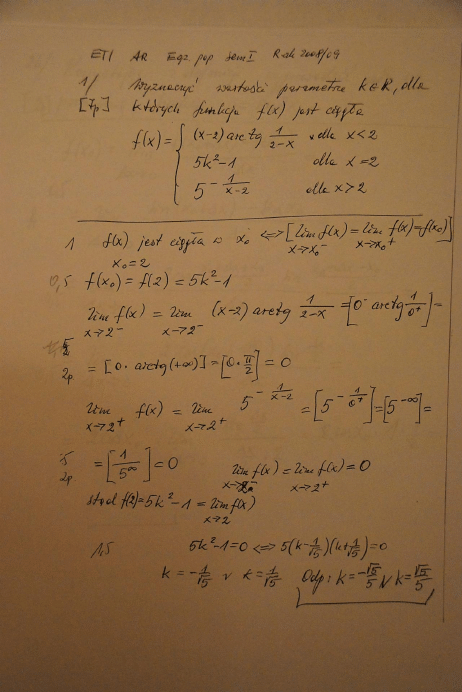 ETI AR Egz. pop sem I R.ak 2008/09
1/ Wyznaczyć wartości parametru k∈R, dla
[7p] których funkcja f(x) jest ciągła
f(x) = { (x-2) arctg 1/(2-x) dla x<2
5k²-1 dla x=2
5^(-1/(x-2)) dla x>2
1 f(x) jest ciągła w x₀ <=> [lim_{x→x₀⁻} f(x) = lim_{x→x₀⁺} f(x) = f(x₀)]
x₀=2
0,5 f(x₀) = f(2) = 5k²-1
lim_{x→2⁻} f(x) = lim_{x→2⁻} (x-2) arctg 1/(2-x) = [0⁻ arctg 1/0⁺] =
2p = [0· arctg(+∞)] = [0·π/2] = 0
lim_{x→2⁺} f(x) = lim_{x→2⁺} 5^(-1/(x-2)) = [5^(-1/0⁺)] = [5^(-∞)] =
2p = [1/5^∞] = 0 lim_{x→2⁻} f(x) = lim_{x→2⁺} f(x) = 0
stąd f(2) = 5k²-1 = lim_{x→2} f(x)
1,5 5k²-1=0 <=> 5(k-1/√5)(k+1/√5)=0
k = -1/√5 ∨ k = 1/√5 Odp: k = -√5/5 ∨ k = √5/5